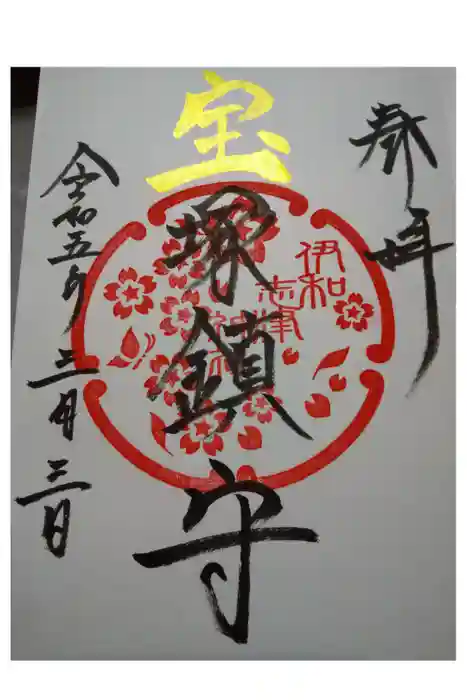 奉拝
宝塚鎮守
伊和
志津
神社
令和五年
三月三日